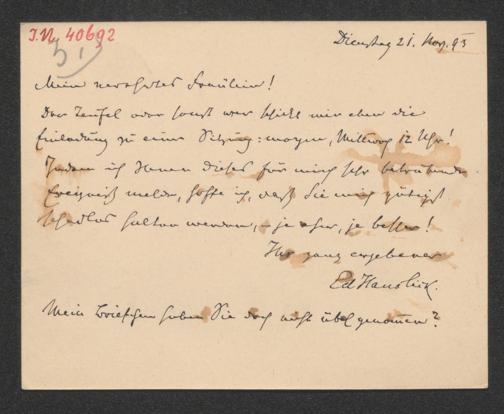 I.N. 40692
Dienstag 21. Nov. 93
Mein verehrtes Fräulein!
Der Teufel oder sonst wer schickt mir eben die
Einladung zu einer Sitzung: morgen, Mittwoch 12 Uhr!
Indem ich Ihnen dieses für mich sehr betrübende
Ereigniß melde, hoffe ich, daß Sie mich gütigst
schadlos halten werden, – je eher, je besser!
Ihr ganz ergebener
Ed Hanslick.
Mein Briefchen haben Sie doch nicht übel genommen?